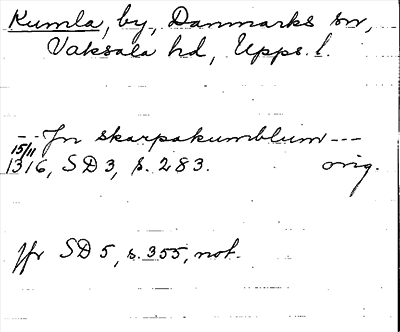 Kumla, by, Danmarks sn,
Vaksala hd, Upps. l.
-- Jn skarpakumblum ---
15/11
1316, SD 3, s. 283. orig.
jfr SD 5, s. 355, not.